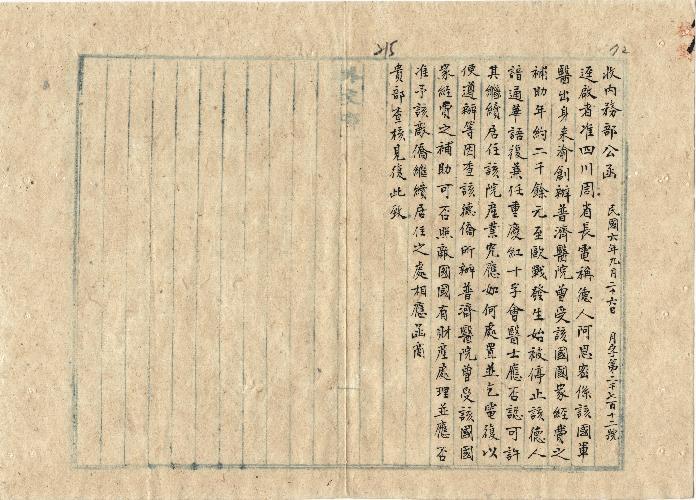 215
12
收內務部公函 民國六年九月二十六日 月字第二千七百十二號
逕啟者准四川周省長電稱德人阿思密係該國軍
醫出身來渝創辦普濟醫院曾受該國國家經費之
補助年約二千餘元至歐戰發生始被停止該德人
諳通華語復兼任重慶紅十字會醫士應否認可許
其繼續居住該院產業究應如何處置並乞電復以
便遵辦等因查該德僑所辦普濟醫院曾受該國國
家經費之補助可否照敵國國有財產處理並應否
准予該敵僑繼續居住之處相應函商
貴部查核見復此致